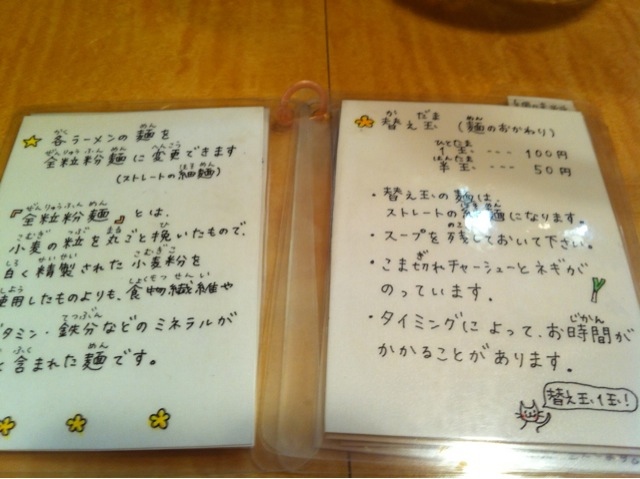 各ラーメンの麺を
全粒粉麺に変更できます
(ストレートの細麺)
『全粒粉麺』とは、
小麦の粒を丸ごと挽いたもので、
白く精製された小麦粉を
使用したものよりも、食物繊維や
タミン・鉄分などのミネラルが
含まれた麺です。
替え玉 (麺のおかわり)
1玉 --- 100円
半玉 --- 50円
・替え玉の麺は
ストレートの細麺になります。
・スープを残しておいて下さい。
・こま切れチャーシューとネギが
のっています。
・タイミングによって、お時間が
かかることがあります。
替え玉1玉!